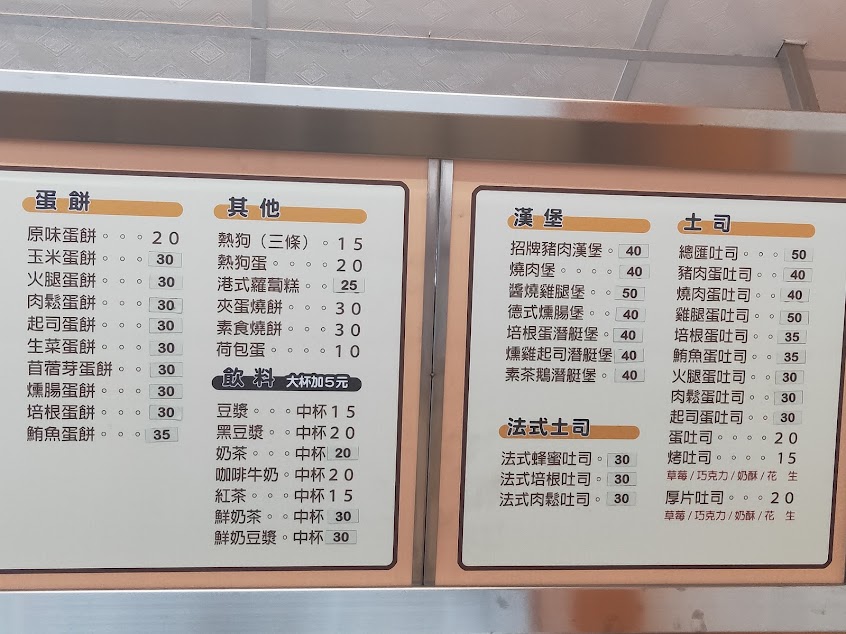 蛋餅
原味蛋餅。。。20
玉米蛋餅。。。30
火腿蛋餅。。。30
肉鬆蛋餅。。。30
起司蛋餅。。。30
生菜蛋餅。。。30
苜蓿芽蛋餅。。30
燻腸蛋餅。。。30
培根蛋餅。。。30
鮪魚蛋餅。。。35
其他
熱狗（三條）。15
熱狗蛋。。。。20
港式蘿蔔糕。。25
夾蛋燒餅。。。30
素食燒餅。。。30
荷包蛋。。。。10
飲料 大杯加5元
豆漿。。。中杯15
黑豆漿。。中杯20
奶茶。。。中杯20
咖啡牛奶。中杯20
紅茶。。。中杯15
鮮奶茶。。中杯30
鮮奶豆漿。中杯30
漢堡
招牌豬肉漢堡。40
燒肉堡。。。。40
醬燒雞腿堡。。50
德式燻腸堡。。40
培根蛋潛艇堡。40
燻雞起司潛艇堡40
素茶鵝潛艇堡。40
法式土司
法式蜂蜜吐司。30
法式培根吐司。30
法式肉鬆吐司。30
土司
總匯吐司。。。50
豬肉蛋吐司。。40
燒肉蛋吐司。。40
雞腿蛋吐司。。50
培根蛋吐司。。35
鮪魚蛋吐司。。35
火腿蛋吐司。。30
肉鬆蛋吐司。。30
起司蛋吐司。。30
蛋吐司。。。。20
烤吐司。。。。15
草莓/巧克力/奶酥/花 生
厚片吐司。。。20
草莓/巧克力/奶酥/花 生